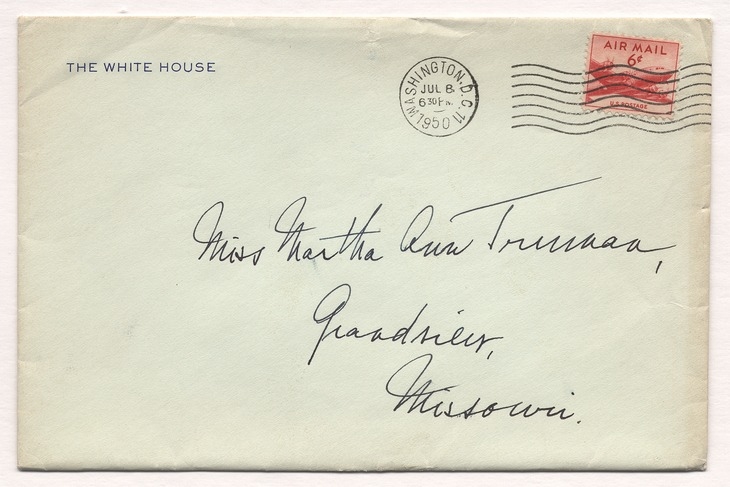 THE WHITE HOUSE
WASHINGTON, D.C. 11
JUL 8
6 30 PM
1950
AIR MAIL
6¢
U.S. POSTAGE
Miss Martha Ann Truman,
Grandview,
Missouri.